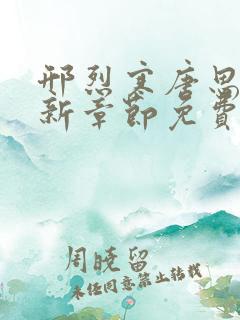 邢烈寒唐思
新章节免费
周晓留
未经同意禁止转载